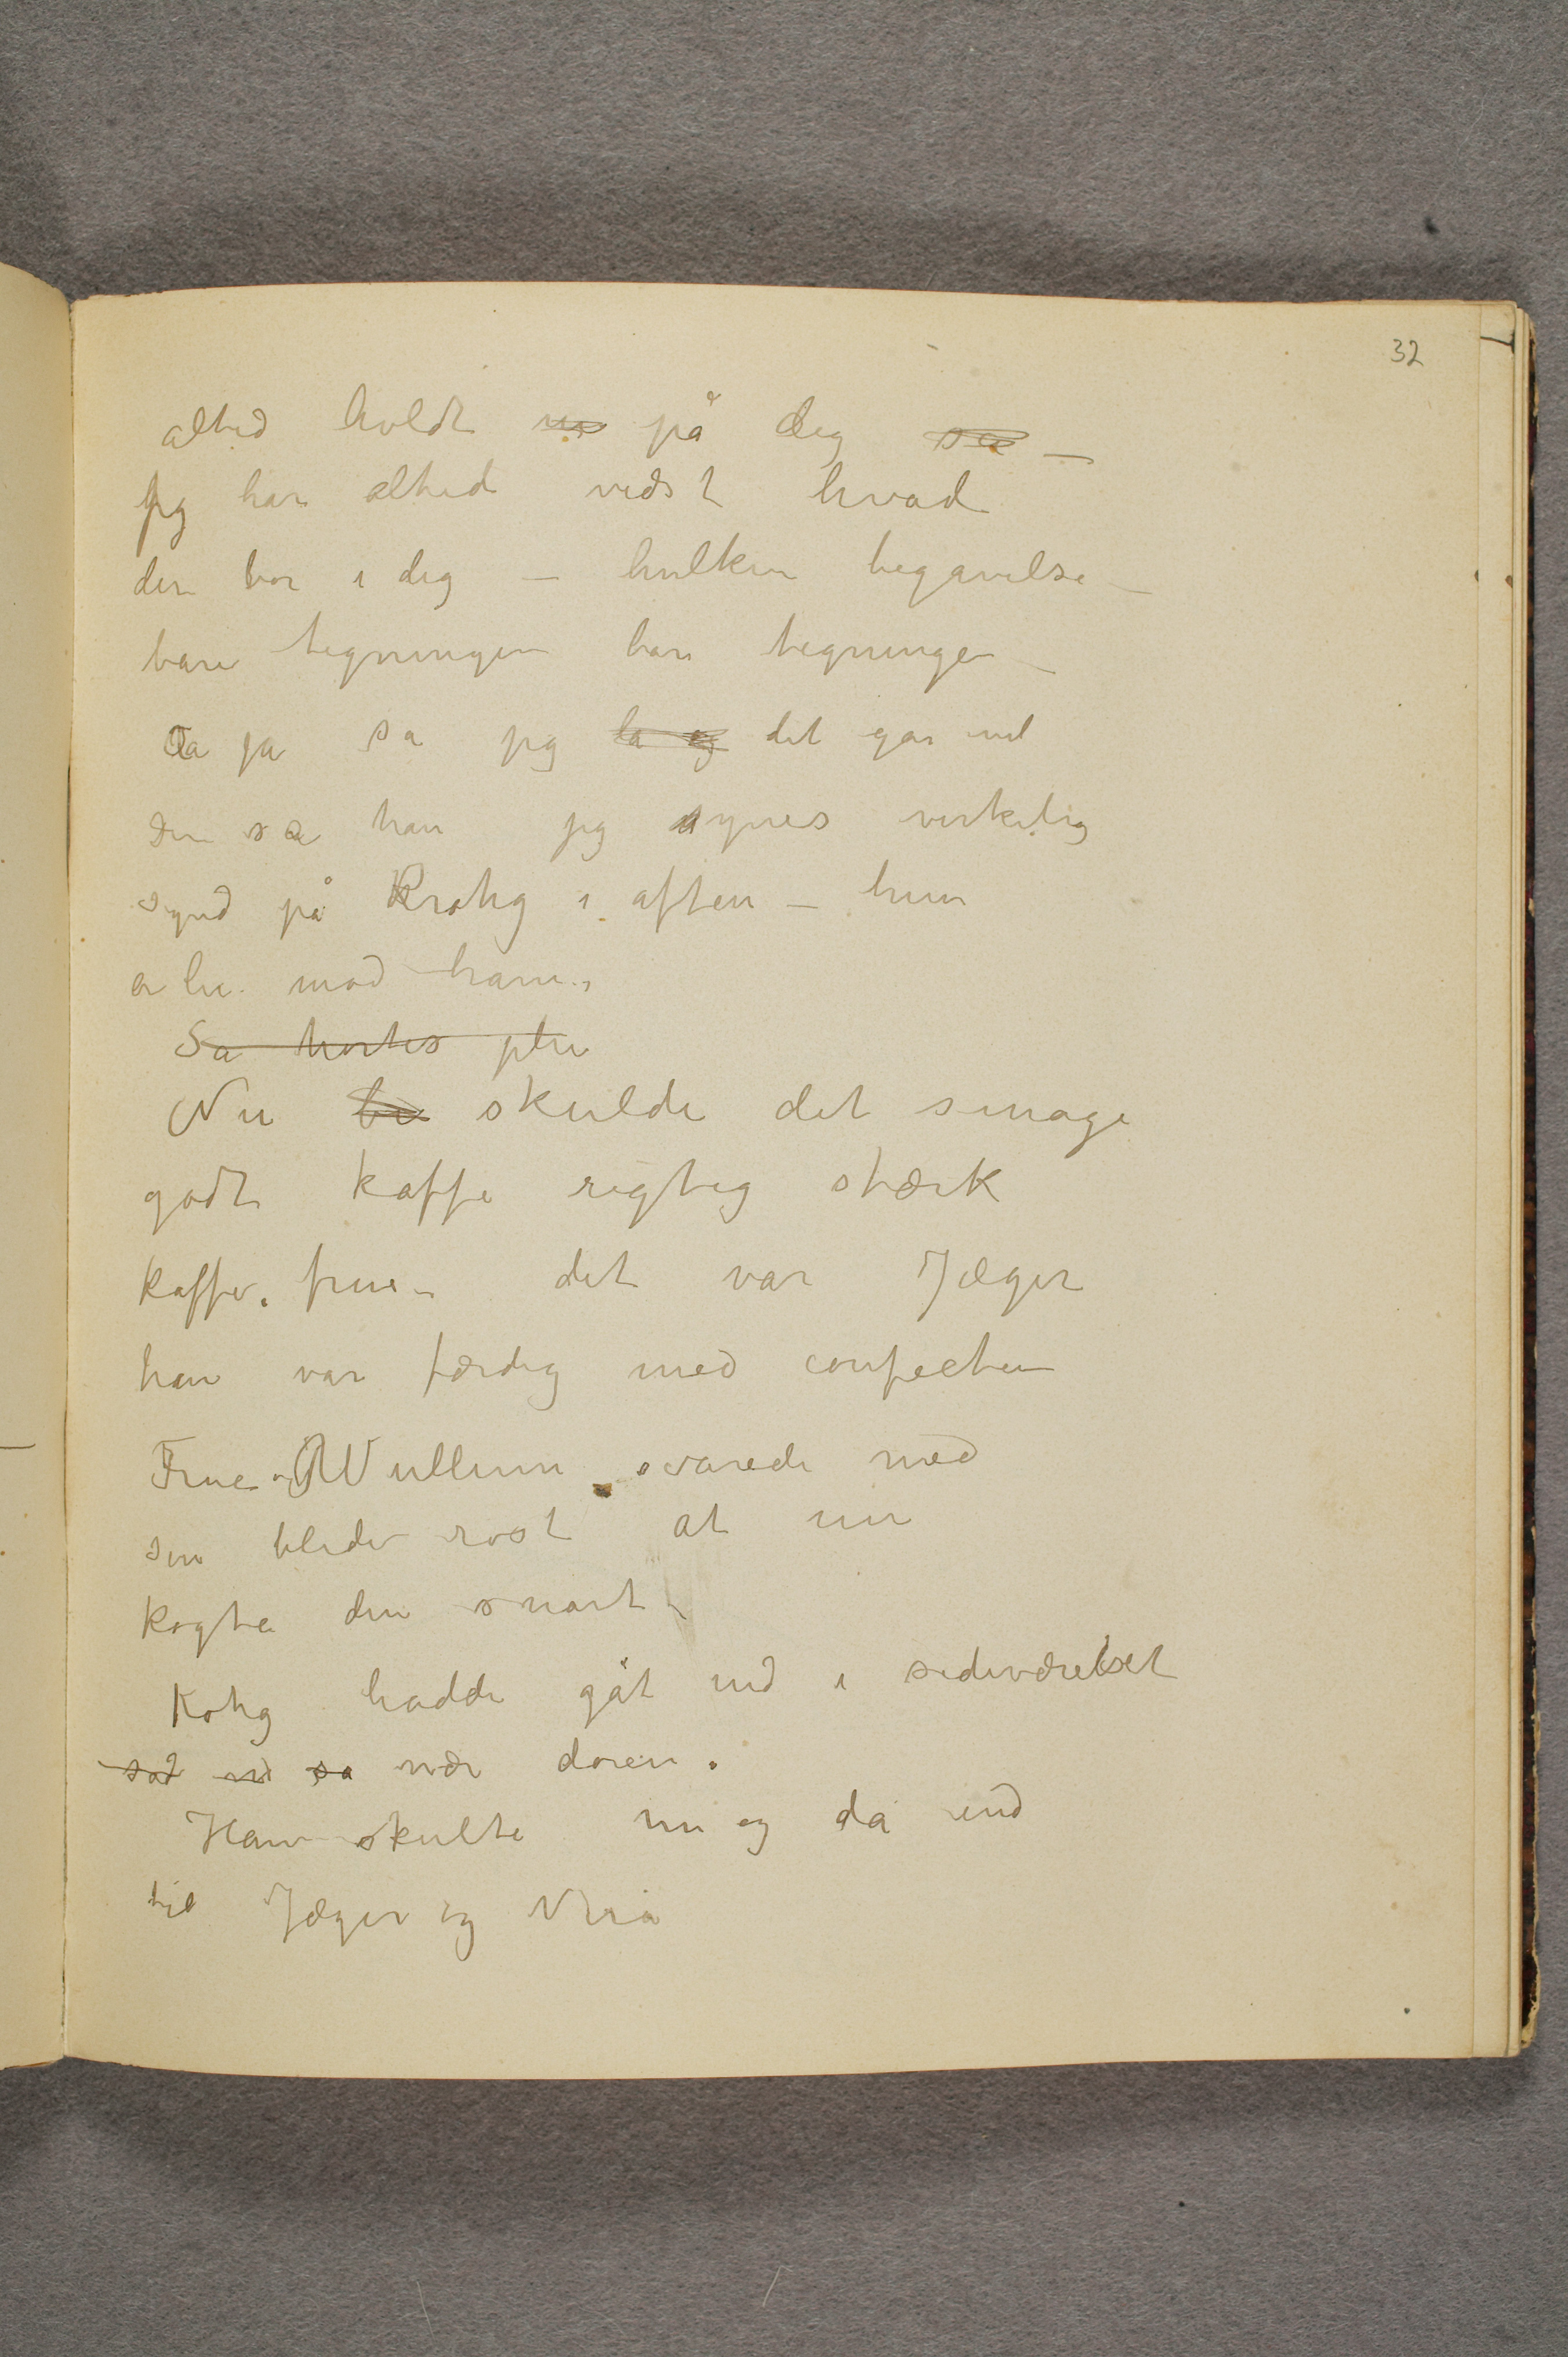 32
altid holdt på dig —
jeg har altid vidst hvad
der bor i dig — hvilken begavelse —
bare tegningen bare tegningen —
Aa ja sa jeg det går vel
sa han jeg synes virkelig
synd på Krohg i aften — hun
er lei mod ham.
Sa hørtes
Nu skulde det smage
godt kaffe rigtig stærk
kaffe, frue — det var Jæger
han var færdig med confecten
Frue Wullum svarede med
sin blide røst at nu
kogte den snart —
Kohg hadde gåt ind i sideværelset
sad sa nær døren.
Han skulte nu og da ind
til Jæger og